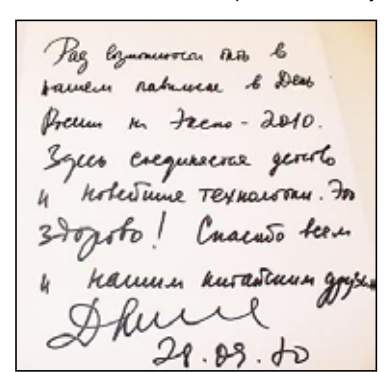 Рад возможности быть в
нашем павильоне в День
России на Экспо - 2010.
Здесь соединяется детство
и новейшие технологии. Это
здорово! Спасибо всем
и нашим китайским друзьям
28.09.10